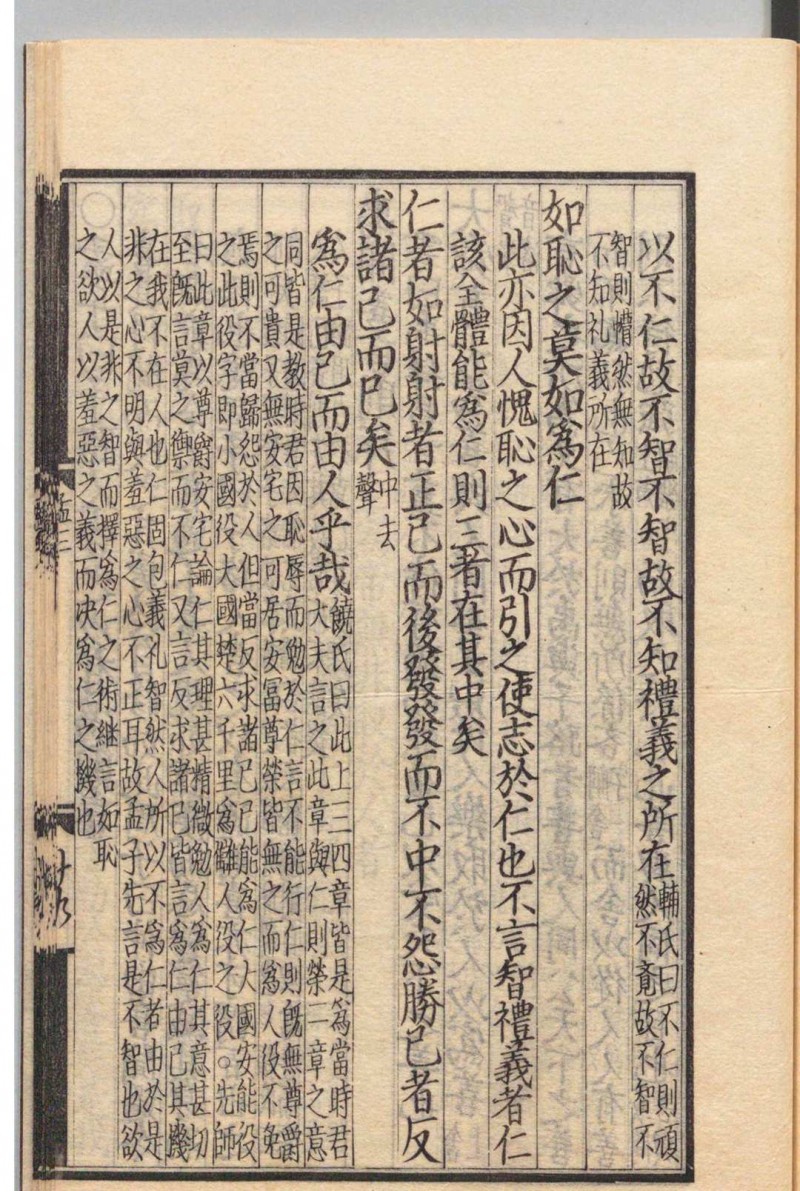 以不仁故不智不智故不知禮義之所在輔氏曰不仁則頑
然不竟故不智不
智則懵然無知故
不知礼義所在
如恥之莫如爲仁
此亦因人愧恥之心而引之使志於仁也不言智禮義者仁
該全體能爲仁則三者在其中矣
仁者如射射者正己而後發發而不中不怨勝己者反
求諸己而已矣中去
聲
爲仁由己而由人乎哉饒氏曰此上三四章皆是爲當時君
大夫言之此章與仁則榮二章之意
同皆是教時君因恥辱而勉於仁言不能行仁則旣無尊爵
之可貴又無安宅之可居安冨尊榮皆無之而爲人役不免
焉則不當歸怨於人但當反求諸己己能爲仁大國安能役
之此役字即小國役大國楚六千里爲讎人役之役○先師
曰此章以尊爵安宅論仁其理甚精微勉人爲仁其意甚切
至旣言莫之禦而不仁又言反求諸己皆言爲仁由己其機
在我不在人也仁固包義礼智然人所以不爲仁者由於是
非之心不明與羞惡之心不正耳故孟子先言是不智也欲
人以是非之智而擇爲仁之術継言如恥
之欲人以羞惡之義而决爲仁之機也
孟三